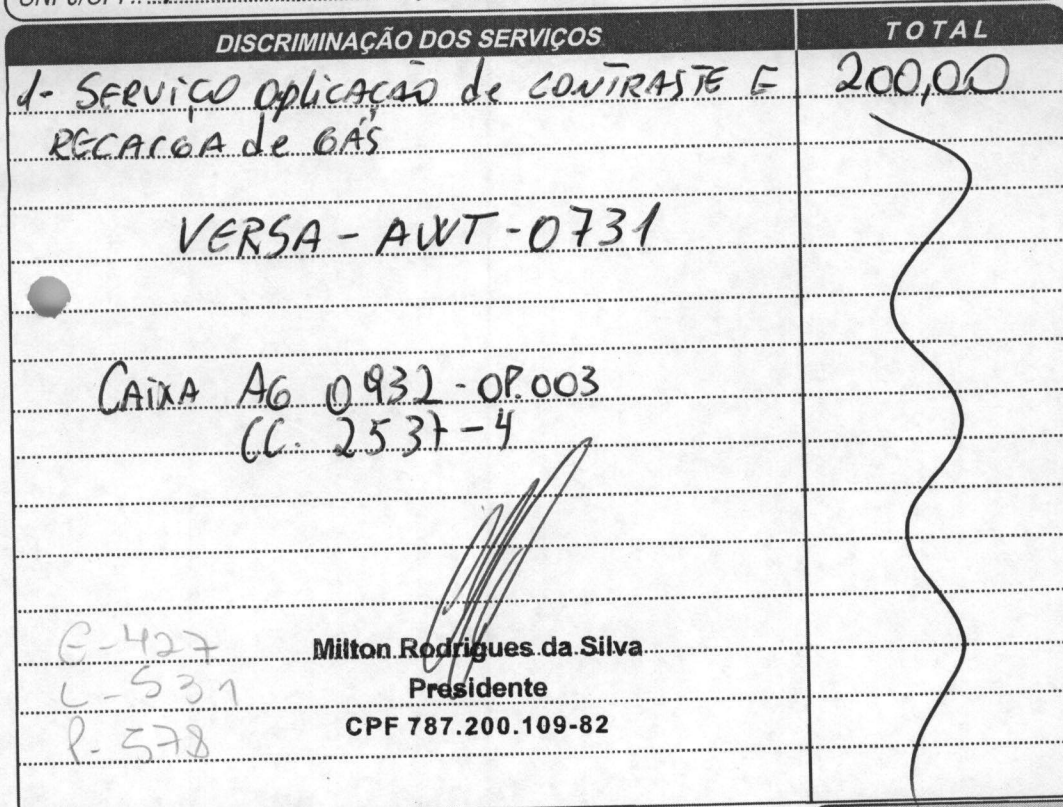 CNPJ/CPF:
DISCRIMINAÇÃO DOS SERVIÇOS TOTAL
1- SERVIÇO APLICAÇÃO de CONTRASTE E 200,00
RECARGA de GÁS
VERSA - AWT - 0731
CAIXA AG 0932 - OP.003
CC. 2537-4
E-427
Milton Rodrigues da Silva
L-531
Presidente
P-578
CPF 787.200.109-82